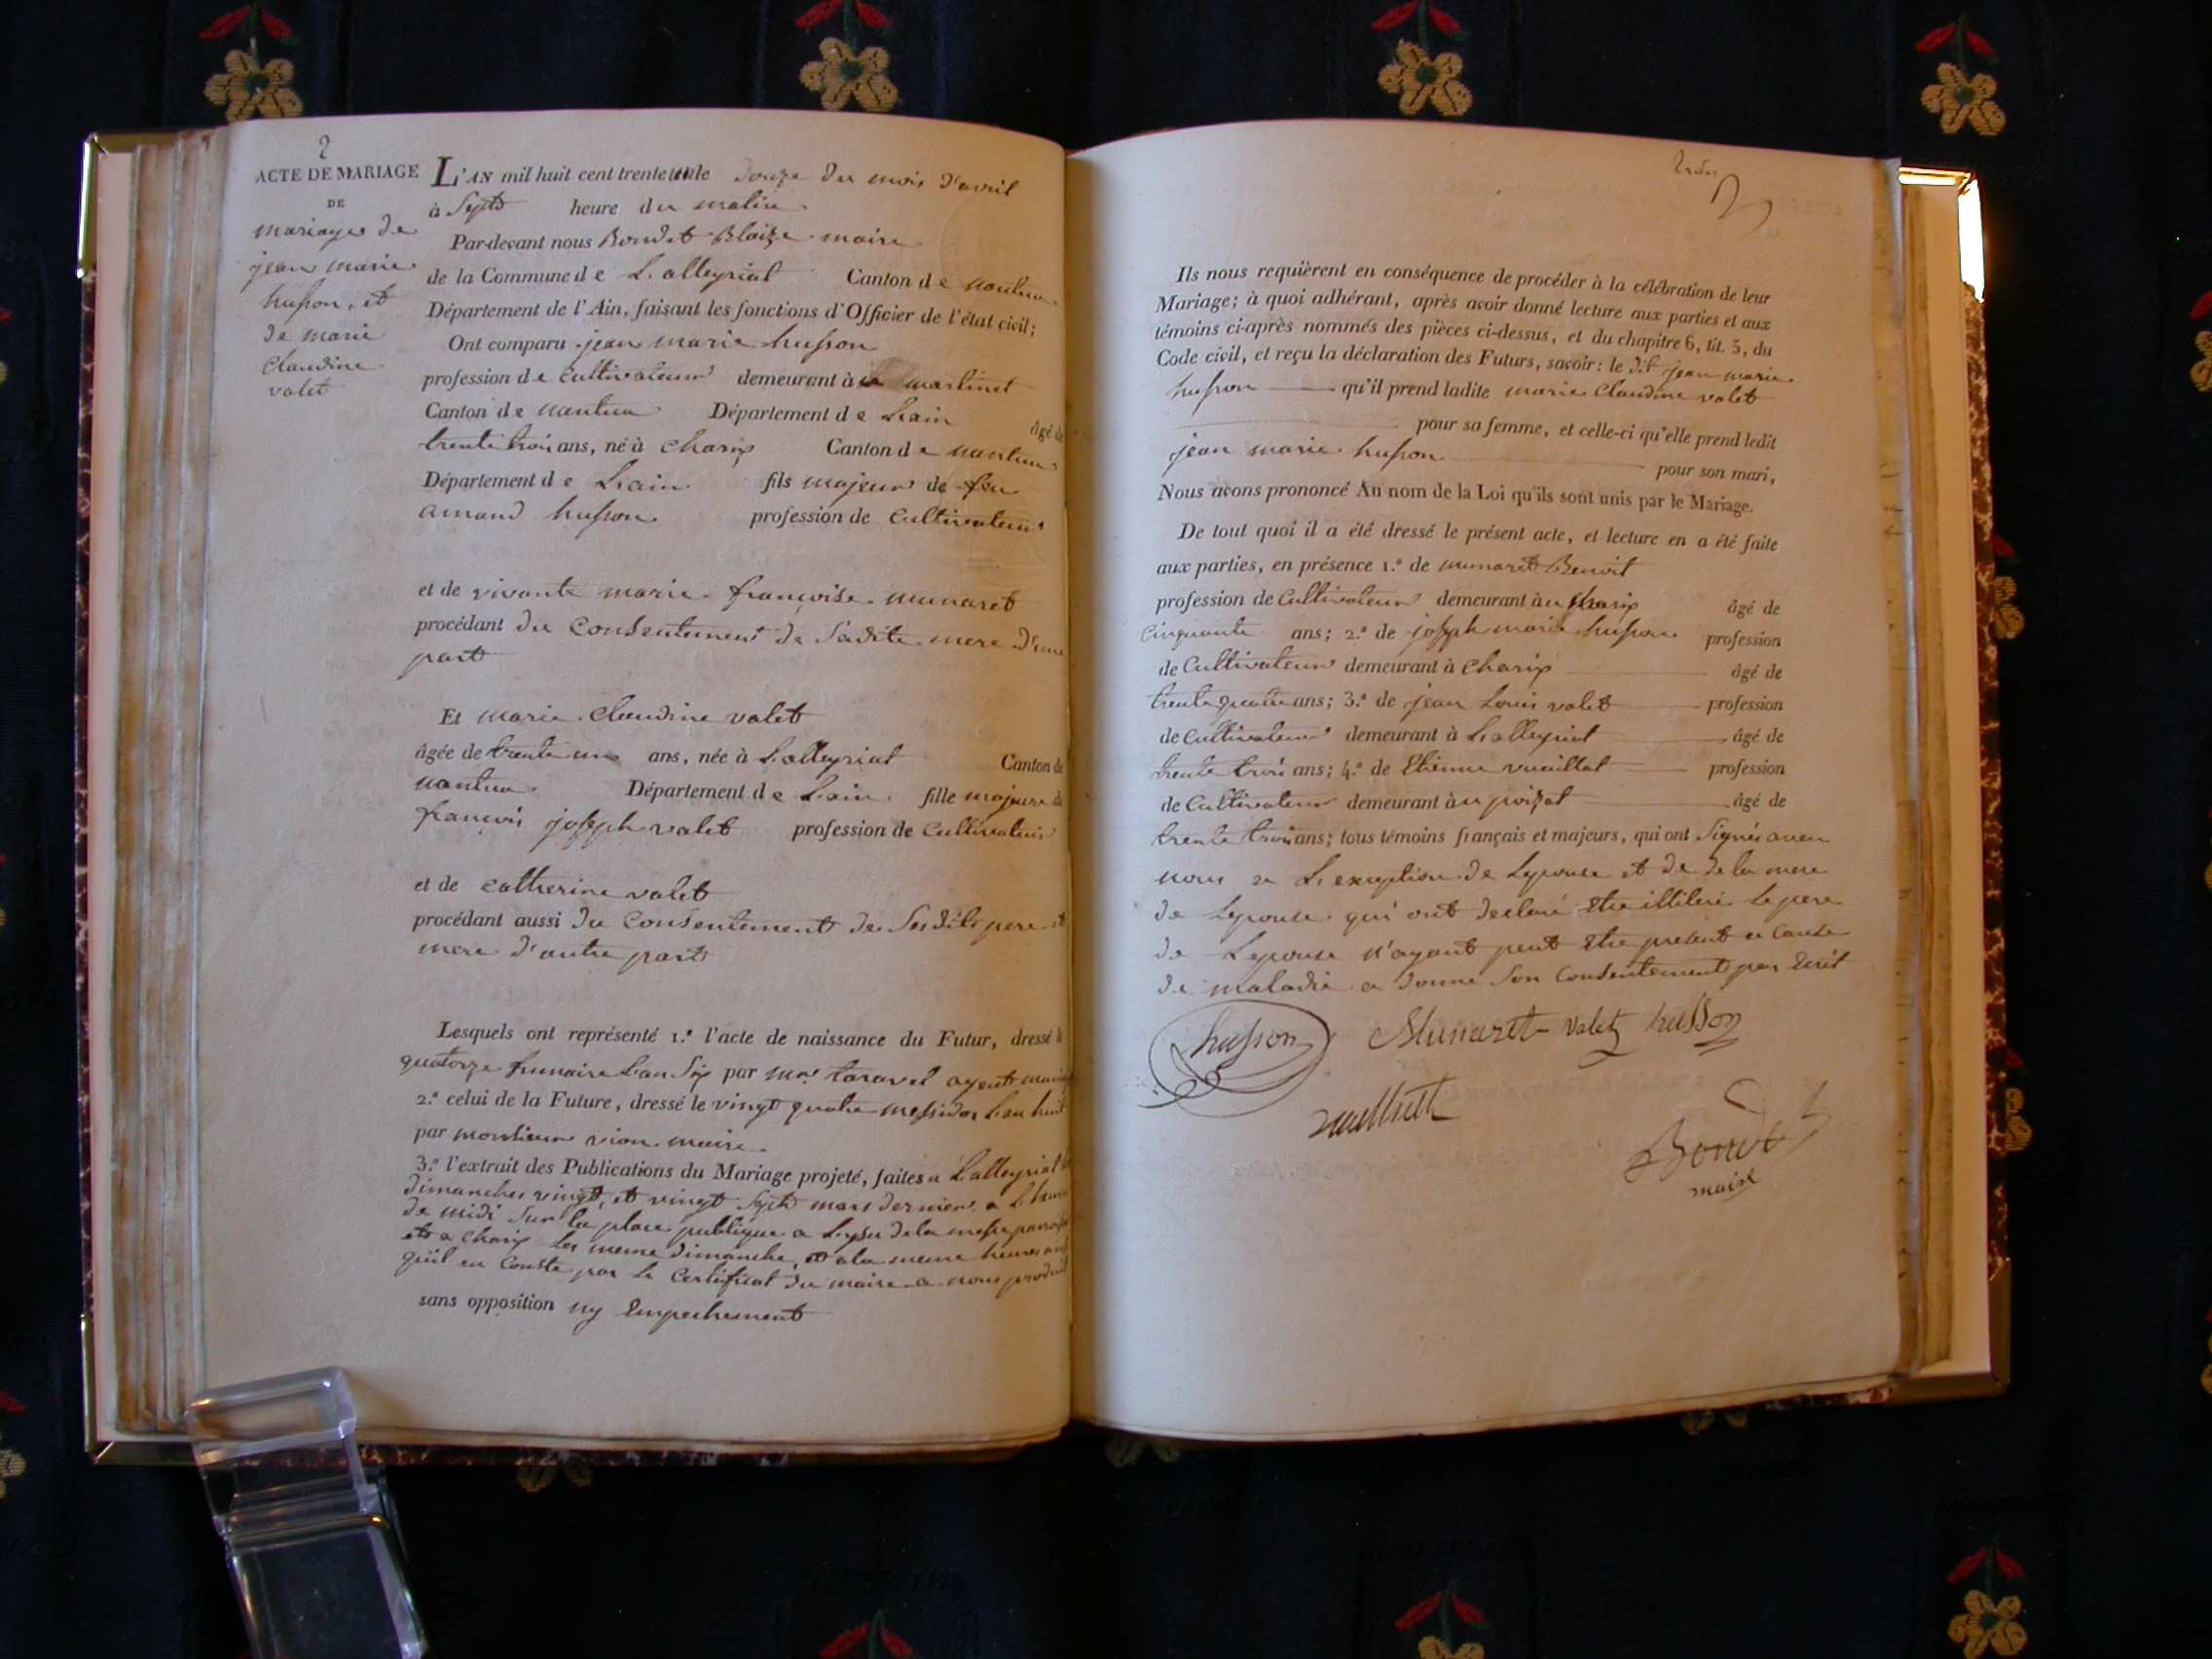 2
ACTE DE MARIAGE
DE
mariage de
jean marie
husson, et
de marie
claudine
valet
L'AN mil huit cent trente un le douze du mois d'avril
à Sept heure du matin
Par-devant nous Bondet Blaize maire
de la Commune de Lalleyriat Canton de nantua
Département de l'Ain, faisant les fonctions d'Officier de l'état civil;
Ont comparu jean marie husson
profession de cultivateur demeurant à martinet
Canton de nantua Département de Lain âgé de
trente trois ans, né à charix Canton de nantua
Département de Lain fils majeur de feu
amand husson profession de cultivateur
et de vivante marie françoise munaret
procédant du consentement de Sadite mere d'une
part
Et marie claudine valet
âgée de trente un ans, née à Lalleyriat Canton de
nantua Département de Lain fille majeure de
françois joseph valet profession de cultivateur
et de catherine valet
procédant aussi du consentement de Ses dits pere et
mere d'autre part
Lesquels ont représenté 1.º l'acte de naissance du Futur, dressé le
quatorze frimaire Lan Six par mr taravel agent
2.º celui de la Future, dressé le vingt quatre messidor Lan huit
par monsieur vion maire
3.º l'extrait des Publications du Mariage projeté, faites a Lalleyriat
dimanches vingt, et vingt Sept mars dernier a L'heure
de midi Sur la place publique a Lyssu de la messe
et a charix les meme dimanche, et a la meme heure
qu'il en conste par le certificat du maire a nous produit
sans opposition ny Empechement
Ils nous requièrent en conséquence de procéder à la célébration de leur
Mariage; à quoi adhérant, après avoir donné lecture aux parties et aux
témoins ci-après nommés des pièces ci-dessus, et du chapitre 6, tit. 5, du
Code civil, et reçu la déclaration des Futurs, savoir: le dit jean marie
husson qu'il prend ladite marie claudine valet
pour sa femme, et celle-ci qu'elle prend ledit
jean marie husson pour son mari,
Nous avons prononcé Au nom de la Loi qu'ils sont unis par le Mariage.
De tout quoi il a été dressé le présent acte, et lecture en a été faite
aux parties, en présence 1.º de munaret Benoit
profession de cultivateur demeurant à charix âgé de
cinquante ans; 2.º de joseph marie husson profession
de cultivateur demeurant à charix âgé de
trente quatre ans; 3.º de jean Louis valet profession
de cultivateur demeurant à Lalleyriat âgé de
trente trois ans; 4.º de Etienne vuaillat profession
de cultivateur demeurant à poizat âgé de
trente trois ans; tous témoins français et majeurs, qui ont Signés avec
nous a Lexception de Lepouse et de de la mere
de Lepouse qui ont declaré Etre illiteré le pere
de Lepouse n'ayant peut etre present a cause
de maladie a donne Son consentement par Ecrit
husson Munaret valet husson
Bondet
maire